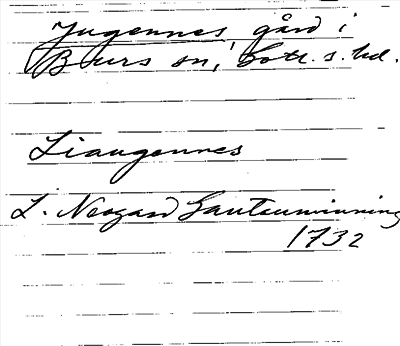 Jugennes gård i
Burs sn, Gotl. s. hd.
Liaugennes
L. Neogard Gautauminning
1732